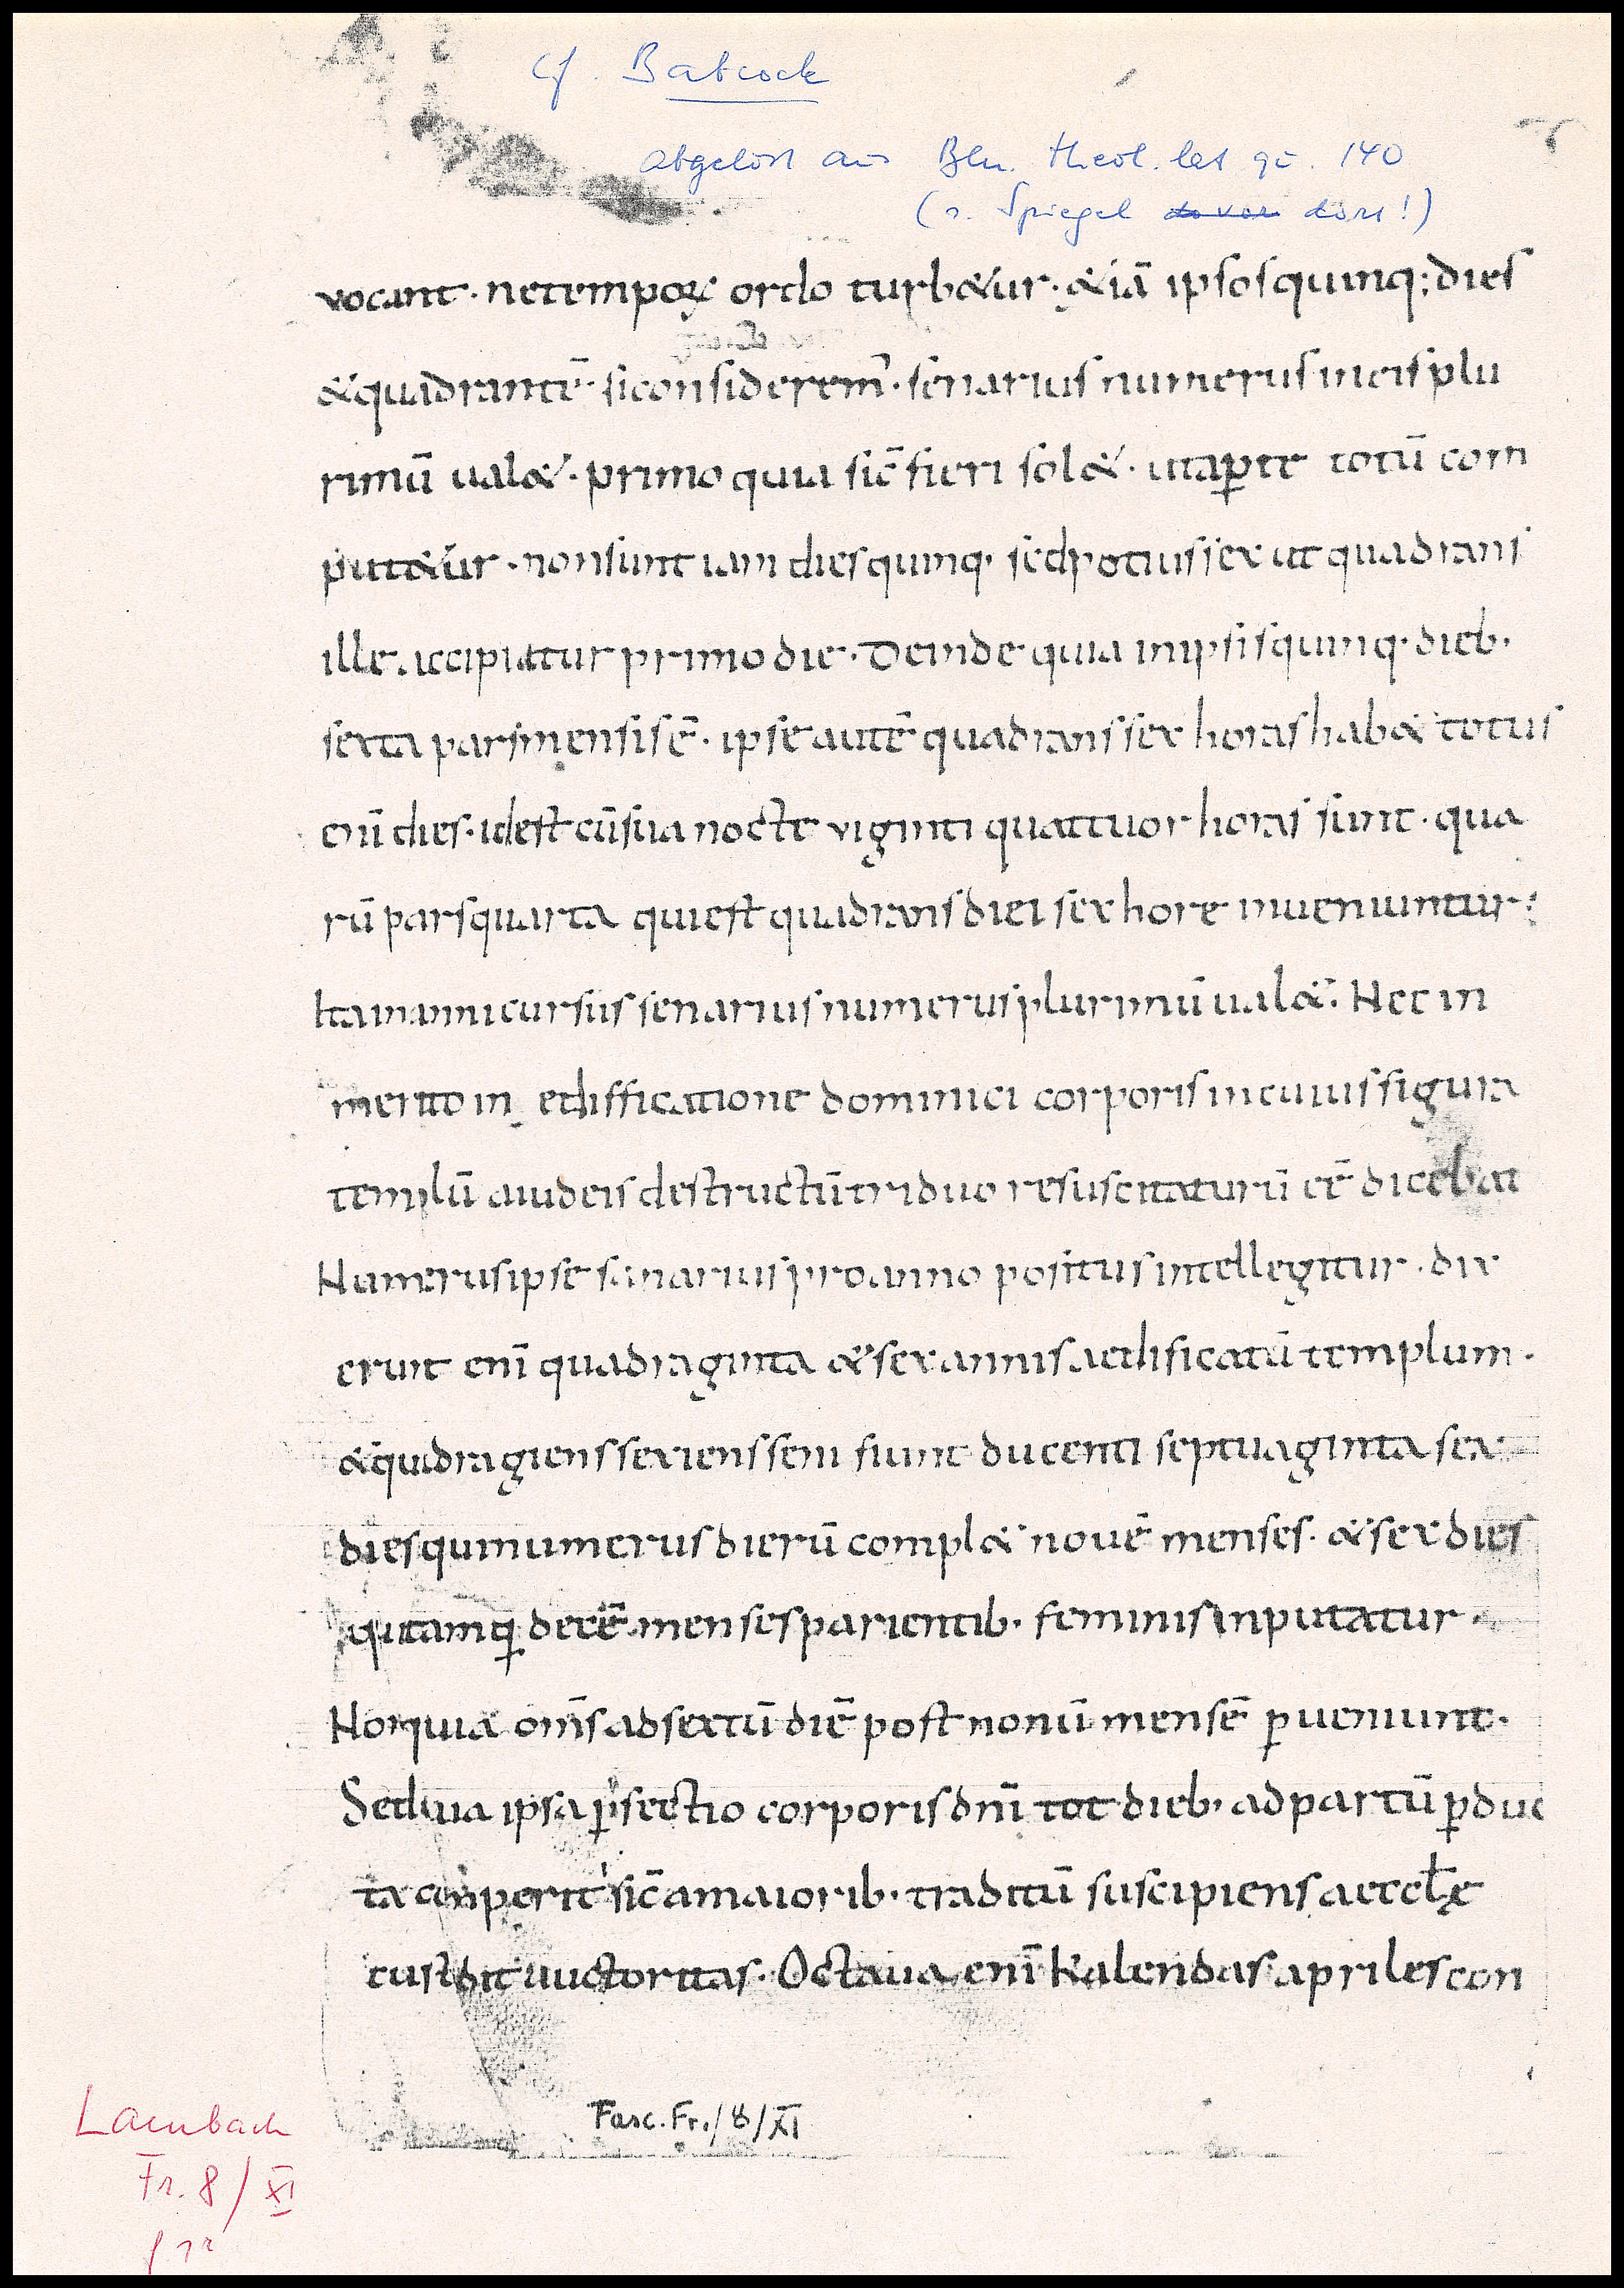 cf. Babcock
abgelöst aus Bln. theol. lat. qu. 140
(s. Spiegel dort!)
vocant · netemporꝝ ordo turb&ur · &iā ipsosquinq; dies
&quadrantē · siconsideremꝰ · senarius numerus ineisplu
rimū ual& · primo quia sic̄ fieri sol& · utaꝑte totū com
put&ur · nonsunt iam diesquinq· sedpotiussex ut quadrans
ille accipiatur primo die · Deinde quia inipsisquinq· dieb·
sexta parsmensis ē · ipse autē quadrans sex horashab& totus
enī dies · idest cūsua nocte viginti quattuor horas sunt · qua
rū parsquarta quiest quadransdiei sex hore inueniuntur :
Itainannicursus senarius numerusplurimū ual& · Nec in
merito in edifficatione dominici corporis incuius figura
templū aiudeis destructū triduo resuscitaturū eē dicebat
Numerusipse senarius proanno positus intellegitur · dix
erunt enī quadraginta &sex annis aedificatū templum ·
&quadragiens sexiens seni fiunt ducenti septuaginta sex
diesquinumerus dierū compl& nouē menses · &sex dies
quitamꝗ decē mensesparientib· feminis inputatur ·
Nonquia om̄s adsextū diē post nonū mensē ꝑueniunt ·
Sedquia ipsa ꝑfectio corporis dn̄i tot dieb· adpartū ꝑduc
ta conperit sic̄ amaiorib· traditū suscipiens aeccl̄ę
custodit auctoritas · Octaua enī Kalendas aprilescon
Fasc. Fr./8/XI
Lambach
Fr. 8/XI